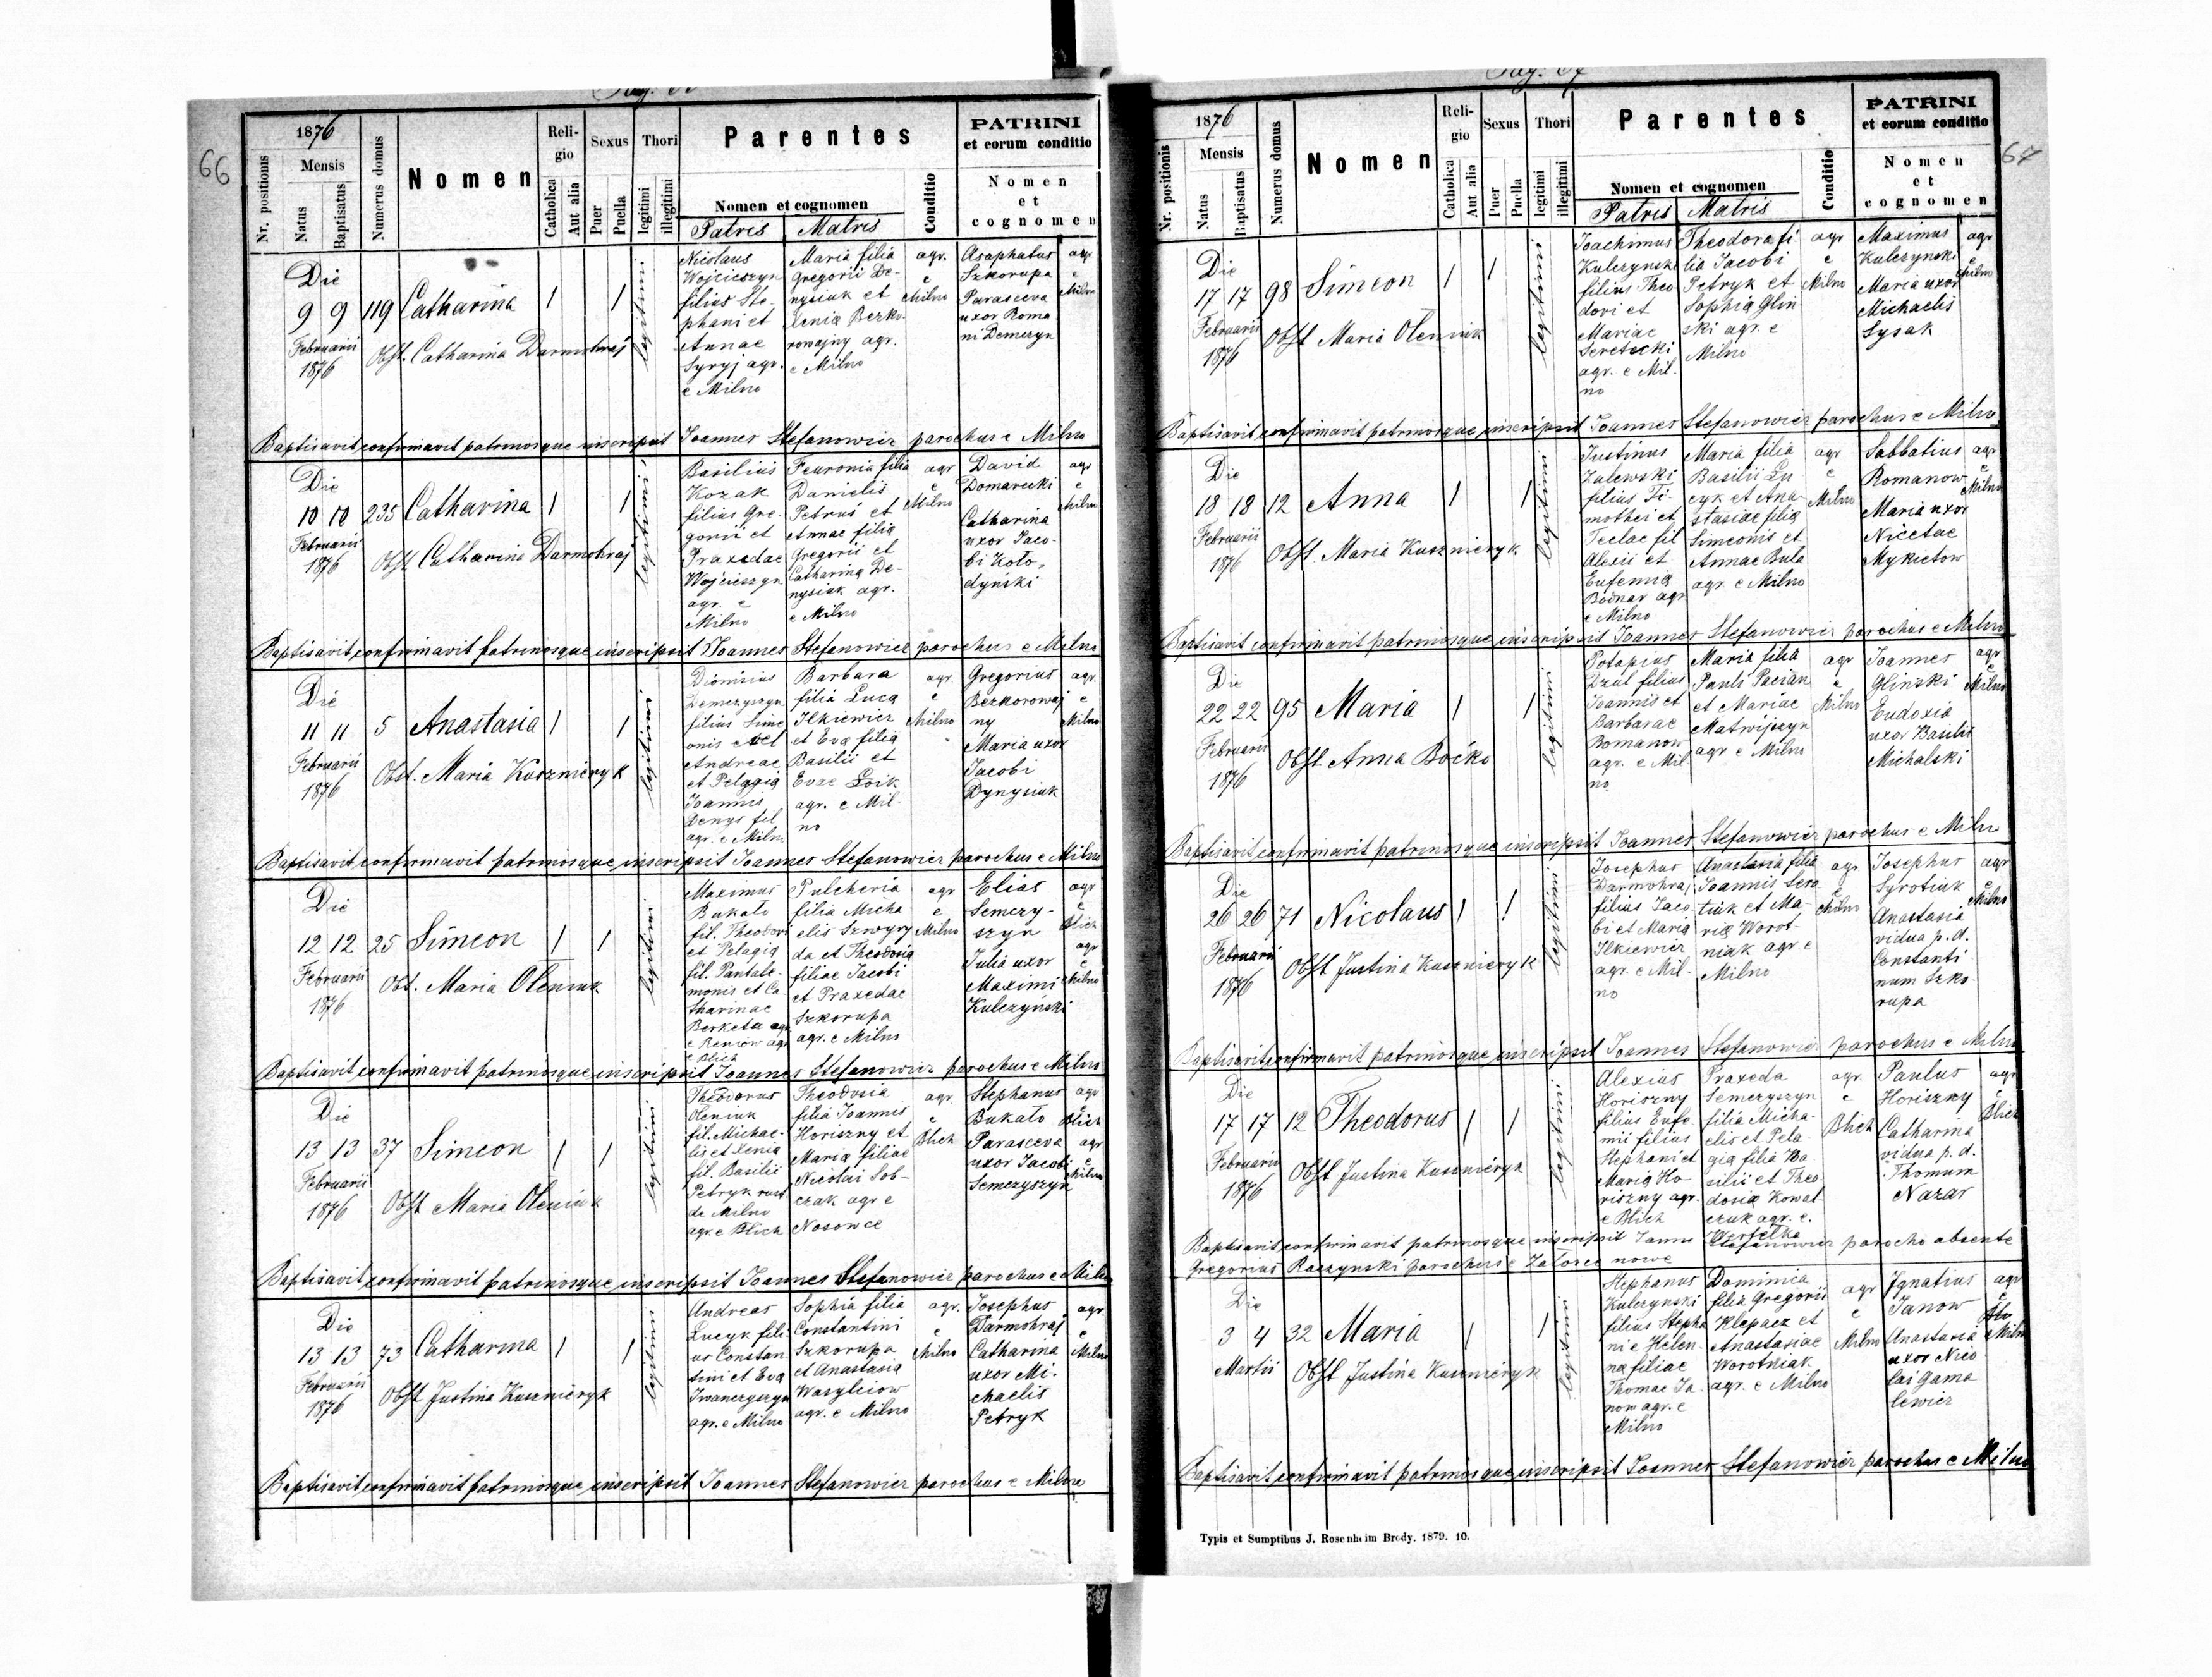 66
1876
Nr. positionus
Mensis
Natus
Baptisatus
Numerus domus
Nomen
Religio
Catholica
Aut alia
Sexus
Puer
Puella
Thori
legitimi
illegitimi
Parentes
Nomen et cognomen
Patris Matris
Conditio
PATRINI
et eorum conditio
Nomen
et
cognomen
Die
9 9 119 Catharina 1 1 legitimi
Februarii
1876
Obst. Catharina Darmohraj
Nicolaus
Wojcieszyn
filius Ste-
phani et
Annae
Syryj agr.
e Milno
Maria filia
Gregorii De-
nysiuk et
Xenia Bezko-
rowajny agr.
e Milno
agr.
e
Milno
Asaphatus
Szkorupa
Parasceva
uxor Roma
ni Demezyn
agr
e
Milno
Baptisavit, confirmavit patrinosque inscripsit Joannes Stefanowicz parochus e Milno
Die
10 10 235 Catharina 1 1 legitimi
Februarii
1876
Obst Catharina Darmohraj
Basilius
Kozak
filius Gre-
gorii et
Praxedae
Wojcieszyn
agr. e
Milno
Feuronia filia
Danielis
Petrus et
Annae filia
Gregorii et
Catharina De-
nysiuk agr.
e Milno
agr
e
Milno
David
Domarecki
Catharina
uxor Jaco-
bi Koło-
dyński
agr
e
Milno
Baptisavit, confirmavit patrinosque inscripsit Joannes Stefanowicz parochus e Milno
Die
11 11 5 Anastasia 1 1 legitimi
Februarii
1876
Obst. Maria Kusznieryk
Dionisius
Demezyszyn
filius Sime
onis
Andreae
et Pelagia
Joannis
Denys fil
agr. e Milno
Barbara
filia Luca
Ilkiewicz
et Eva filia
Basilii et
Evae Łoik
agr. e Mil-
no
agr.
e
Milno
Gregorius
Bezkorowaj
ny
Maria uxor
Jacobi
Dynysiuk
agr.
e
Milno
Baptisavit, confirmavit patrinosque inscripsit Joannes Stefanowicz parochus e Milno
Die
12 12 25 Simeon 1 1 legitimi
Februarii
1876
Obst. Maria Oleniuk
Maximus
Bukało
fil. Theodori
et Pelagia
fil. Pantale-
monis et Ca-
tharinae
Berketa agr
e Reniow agr
e Blich
Pulcheria
filia Micha
elis Szwyry
da et Theodosia
filiae Jacobi
et Praxedae
Szkorupa
agr. e Milno
agr
e
Milno
Elias
Semezy-
szyn
Julia uxor
Maximi
Kulczyński
agr
e
Blich
agr
e
Milno
Baptisavit, confirmavit patrinosque inscripsit Joannes Stefanowicz parochus e Milno
Die
13 13 37 Simeon 1 1 legitimi
Februarii
1876
Obst Maria Oleniuk
Theodorus
Oleniuk
fil. Michae-
lis et Xenia
fil. Basilii
Petryk rust.
de Milno
agr. e Blich
Theodosia
filia Joannis
Horiszny et
Maria filiae
Nicolai Sob-
czak agr e
Nosowce
agr
e
Blich
Stephanus
Bukało
Parasceva
uxor Jacobi
Semezyszyn
agr
Blich
agr
e
Milno
Baptisavit, confirmavit patrinosque inscripsit Joannes Stefanowicz parochus e Milno
Die
13 13 73 Catharina 1 1 legitimi
Februarii
1876
Obst Justina Kusznieryk
Andreas
Lucyk fili-
us Constan
tini et Eva
Iwanczyszyn
agr. e Milno
Sophia filia
Constantini
Szkorupa
et Anastasia
Wasyleiow
agr. e Milno
agr.
e
Milno
Josephus
Darmohraj
Catharina
uxor Mi-
chaelis
Petryk
agr.
e
Milno
Baptisavit, confirmavit patrinosque inscripsit Joannes Stefanowicz parochus e Milno
67
1876
Nr. positionis
Mensis
Natus
Baptisatus
Numerus domus
Nomen
Religio
Catholica
Aut alia
Sexus
Puer
Puella
Thori
legitimi
illegitimi
Parentes
Nomen et cognomen
Patris Matris
Conditio
PATRINI
et eorum conditio
Nomen
et
cognomen
Die
17 17 98 Simeon 1 1 legitimi
Februarii
1876
Obst Maria Oleniuk
Joachimus
Kulczynski
filius Theo
dori et
Mariae
Seretecki
agr. e Mil-
no
Theodora fi
lia Jacobi
Petryk et
Sophia Glin
ski agr. e
Milno
agr
e
Milno
Maximus
Kulczynski
Maria uxor
Michaelis
Sysak
agr
e
Milno
Baptisavit, confirmavit patrinosque inscripsit Joannes Stefanowicz parochus e Milno
Die
18 18 12 Anna 1 1 legitimi
Februarii
1876
Obst Maria Kusznieryk
Justinus
Zalewski
filius Ti-
mothei et
Teclae fil
Alexii et
Eufemia
Bodnar agr
e Milno
Maria filia
Basilii Lu
cyk et Ana-
stasiae filia
Simeonis et
Annae Bula
agr. e Milno
agr
e
Milno
Sabbatius
Romanow
Maria uxor
Nicetae
Mykietow
agr
e
Milno
Baptisavit confirmavit patrinosque inscripsit Joannes Stefanowicz parochus e Milno
Die
22 22 95 Maria 1 1 legitimi
Februarii
1876
Obst Anna Boćko
Potapius
Dzul filius
Joannis et
Barbarae
Romanow
agr. e Mil-
no
Maria filia
Pauli Pacian
et Mariae
Matwijszyn
agr e Milno
agr
e
Milno
Joannes
Glinski
Eudoxia
uxor Basilii
Michalski
agr
e
Milno
Baptisavit, confirmavit patrinosque inscripsit Joannes Stefanowicz parochus e Milno
Die
26 26 71 Nicolaus 1 1 legitimi
Februarii
1876
Obst Justina Kusznieryk
Josephus
Darmohraj
filius Jaco
bi et Maria
Ilkiewicz
agr. e Mil-
no
Anastasia filia
Joannis Sero
tiuk et Ma-
ria Worot-
niak agr. e
Milno
agr
e
Milno
Josephus
Syrotiuk
Anastasia
vidua p. d.
Constanti
num Szko-
rupa
agr
e
Milno
Baptisavit, confirmavit patrinosque inscripsit Joannes Stefanowicz parochus e Milno
Die
17 17 12 Theodorus 1 1 legitimi
Februarii
1876
Obst Justina Kusznieryk
Alexius
Horiszny
filius Eufe-
mii filius
Stephani et
Maria Ho
riszny agr.
e Blich
Praxeda
Semezyszyn
filia Micha-
elis et Pela-
gia filia Ba
silii et Theo
dosia Kowal
czuk agr. e.
Wertelka
agr.
e
Blich
Paulus
Horiszny
Catharina
vidua p. d.
Thomam
Nazar
agr
e
Blich
Baptisavit, confirmavit patrinosque inscripsit Joanne Stefanowicz parocho absente
Gregorius Raczynski parochus e Załoce nowe
Die
3 4 32 Maria 1 1 legitimi
Martii
Obst Justina Kusznieryk
Stephanus
Kulczynski
filius Stepha
ni e Helen-
na filiae
Thomae Ja-
now agr. e
Milno
Dominica
filia Gregorii
Klepacz et
Anastasiae
Worotniak
agr. e Milno
agr
e
Milno
Ignatius
Janow
Anastasia
uxor Nico
lai Gama
lewicz
agr
e
Milno
Baptisavit, confirmavit patrinosque inscripsit Joannes Stefanowicz parochus e Milno
Typis et Sumptibus J. Rosenheim Brody. 1879. 10.